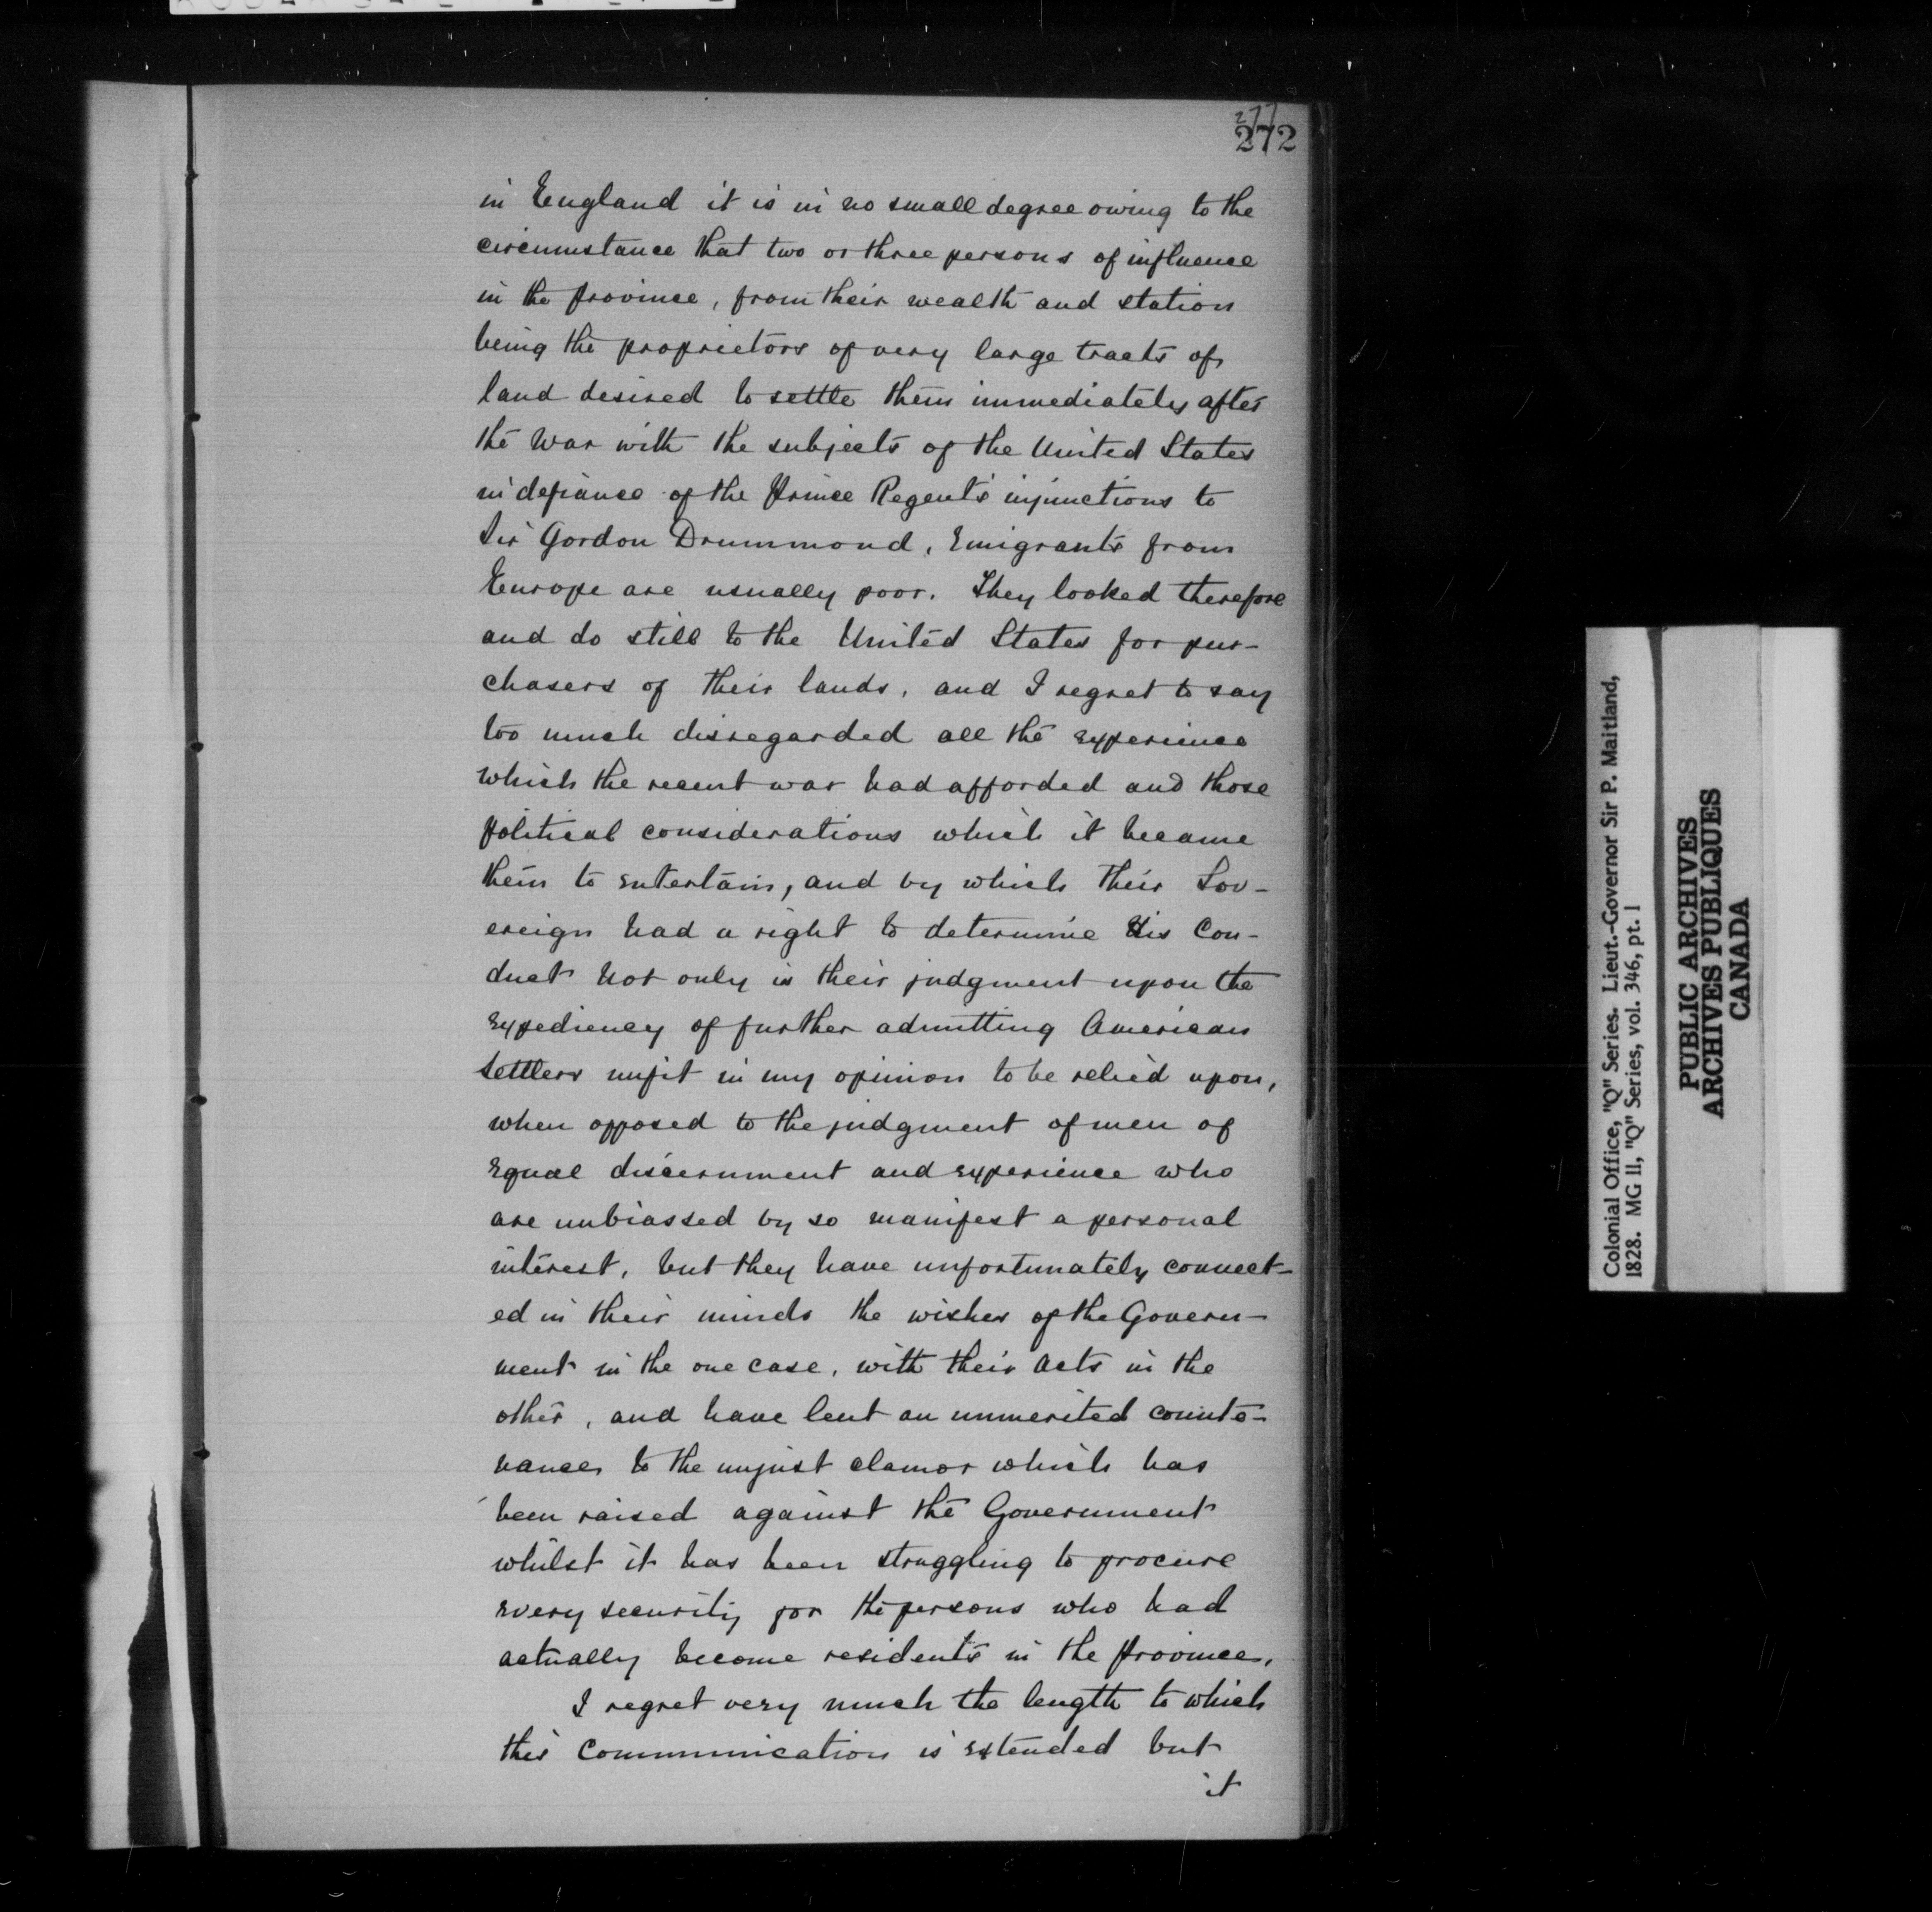 277
272
in England it is in no small degree owing to the
circumstance that two or three persons of influence
in the Province, from their wealth and station
being the proprietors of very large tracts of
land desired to settle them immediately after
the War with the subjects of the United States
in defiance of the Prince Regent's injunctions to
Sir Gordon Drummond, Emigrants from
Europe are usually poor. They looked therefore
and do still to the United States for pur-
chasers of their lands, and I regret to say
too much disregarded all the experience
which the recent war had afforded and those
political considerations which it became
them to entertain, and by which their Sov-
ereign had a right to determine His Con-
duct Not only is their judgment upon the
expediency of further admitting American
Settlers unfit in my opinion to be relied upon,
when opposed to the judgment of men of
equal discernment and experience who
are unbiassed by so manifest a personal
interest, but they have unfortunately connect-
ed in their minds the wishes of the Govern-
ment in the one case, with their Acts in the
other, and have lent an unmerited counte-
nance to the unjust clamor which has
been raised against the Government
whilst it has been struggling to procure
every security for the persons who had
actually become residents in the Province.
I regret very much the length to which
this Communication is extended but
it
Colonial Office, "Q" Series. Lieut.-Governor Sir P. Maitland,
1828. MG 11, "Q" Series, vol. 346, pt. 1
PUBLIC ARCHIVES
ARCHIVES PUBLIQUES
CANADA